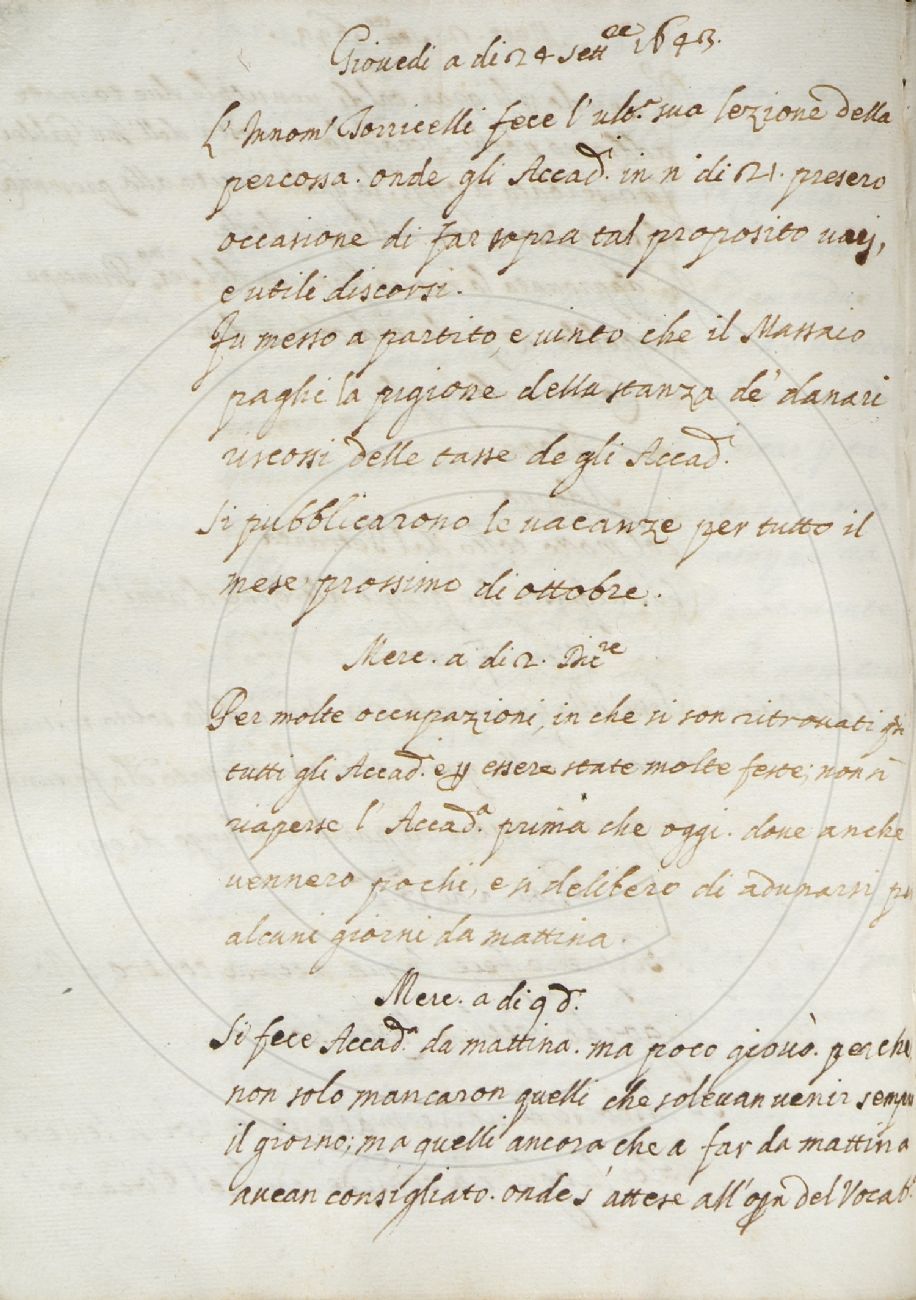 Giovedi a di 24 Sett.re 1643.
L'Innom.to Torricelli fece l'ult.a sua lezione della
percossa. onde gli Accad.i in n.o di 21. presero
occasione di far sopra tal proposito varij,
e utili discorsi.
Fu messo a partito, e vinto che il Massaio
paghi la pigione della stanza de' danari
riscossi delle tasse degli Accad.i
Si pubblicarono le vacanze per tutto il
mese prossimo di ottobre.
Merc. a di 2. Dic.re
Per molte occupazioni, in che si son ritrovati
tutti gli Accad.i e p essere state molte feste, non si
riaperse l'Accad.a prima che oggi. dove anche
vennero pochi, e si delibero di adunarsi p
alcuni giorni da mattina.
Merc. a di 9 d.o
Si fece Accad.a da mattina. ma poco giovò. perche
non solo mancaron quelli che solevan venir sempre
il giorno; ma quelli ancora che a far da mattina
avean consigliato. onde s'attese all'opa del Vocab.